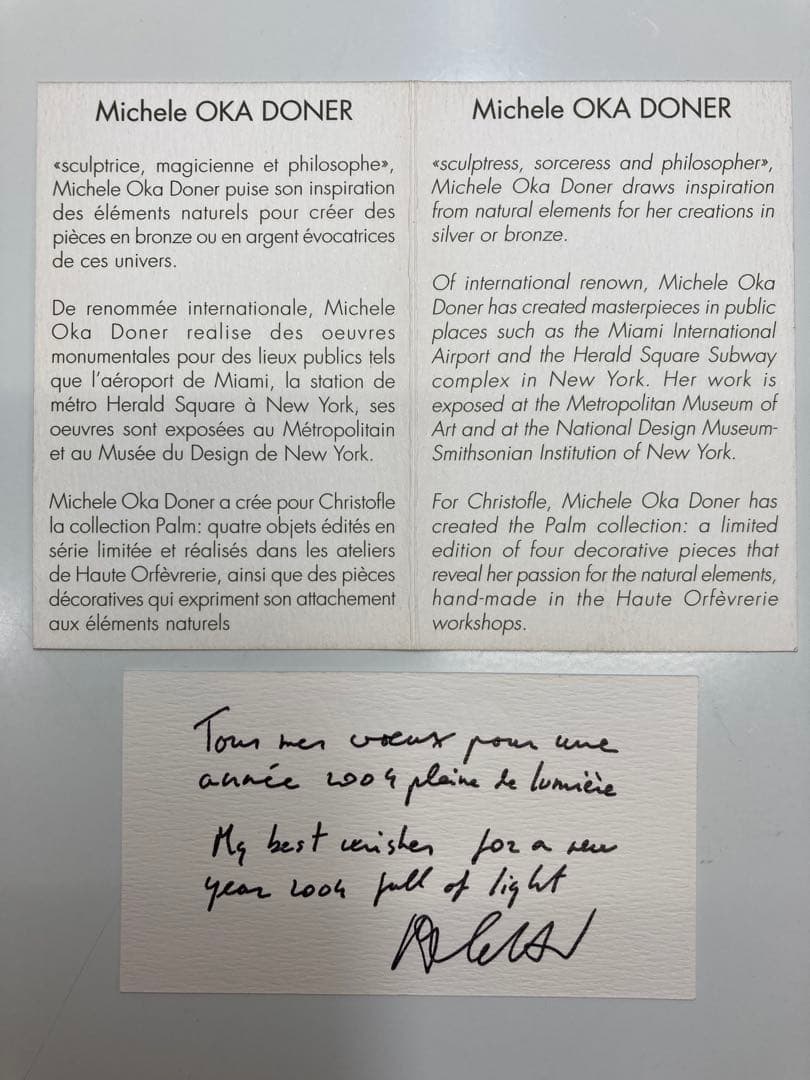 Michele OKA DONER
«sculptrice, magicienne et philosophe»,
Michele Oka Doner puise son inspiration
des éléments naturels pour créer des
pièces en bronze ou en argent évocatrices
de ces univers.
De renommée internationale, Michele
Oka Doner realise des oeuvres
monumentales pour des lieux publics tels
que l'aéroport de Miami, la station de
métro Herald Square à New York, ses
oeuvres sont exposées au Métropolitain
et au Musée du Design de New York.
Michele Oka Doner a crée pour Christofle
la collection Palm: quatre objets édités en
série limitée et réalisés dans les ateliers
de Haute Orfèvrerie, ainsi que des pièces
décoratives qui expriment son attachement
aux éléments naturels
Michele OKA DONER
«sculptress, sorceress and philosopher»,
Michele Oka Doner draws inspiration
from natural elements for her creations in
silver or bronze.
Of international renown, Michele Oka
Doner has created masterpieces in public
places such as the Miami International
Airport and the Herald Square Subway
complex in New York. Her work is
exposed at the Metropolitan Museum of
Art and at the National Design Museum-
Smithsonian Institution of New York.
For Christofle, Michele Oka Doner has
created the Palm collection: a limited
edition of four decorative pieces that
reveal her passion for the natural elements,
hand-made in the Haute Orfèvrerie
workshops.
Tous mes voeux pour une
année 2004 pleine de lumière
My best wishes for a new
year 2004 full of light